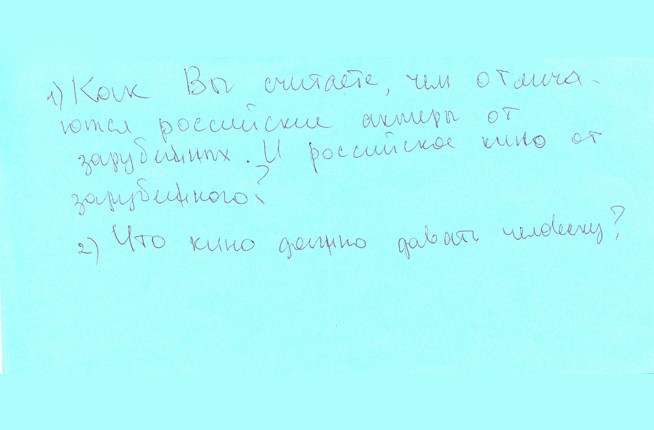 1) Как Вы считаете, чем отлича-
ются российские актеры от
зарубежных. И российское кино от
зарубежного?
2) Что кино должно давать человеку?